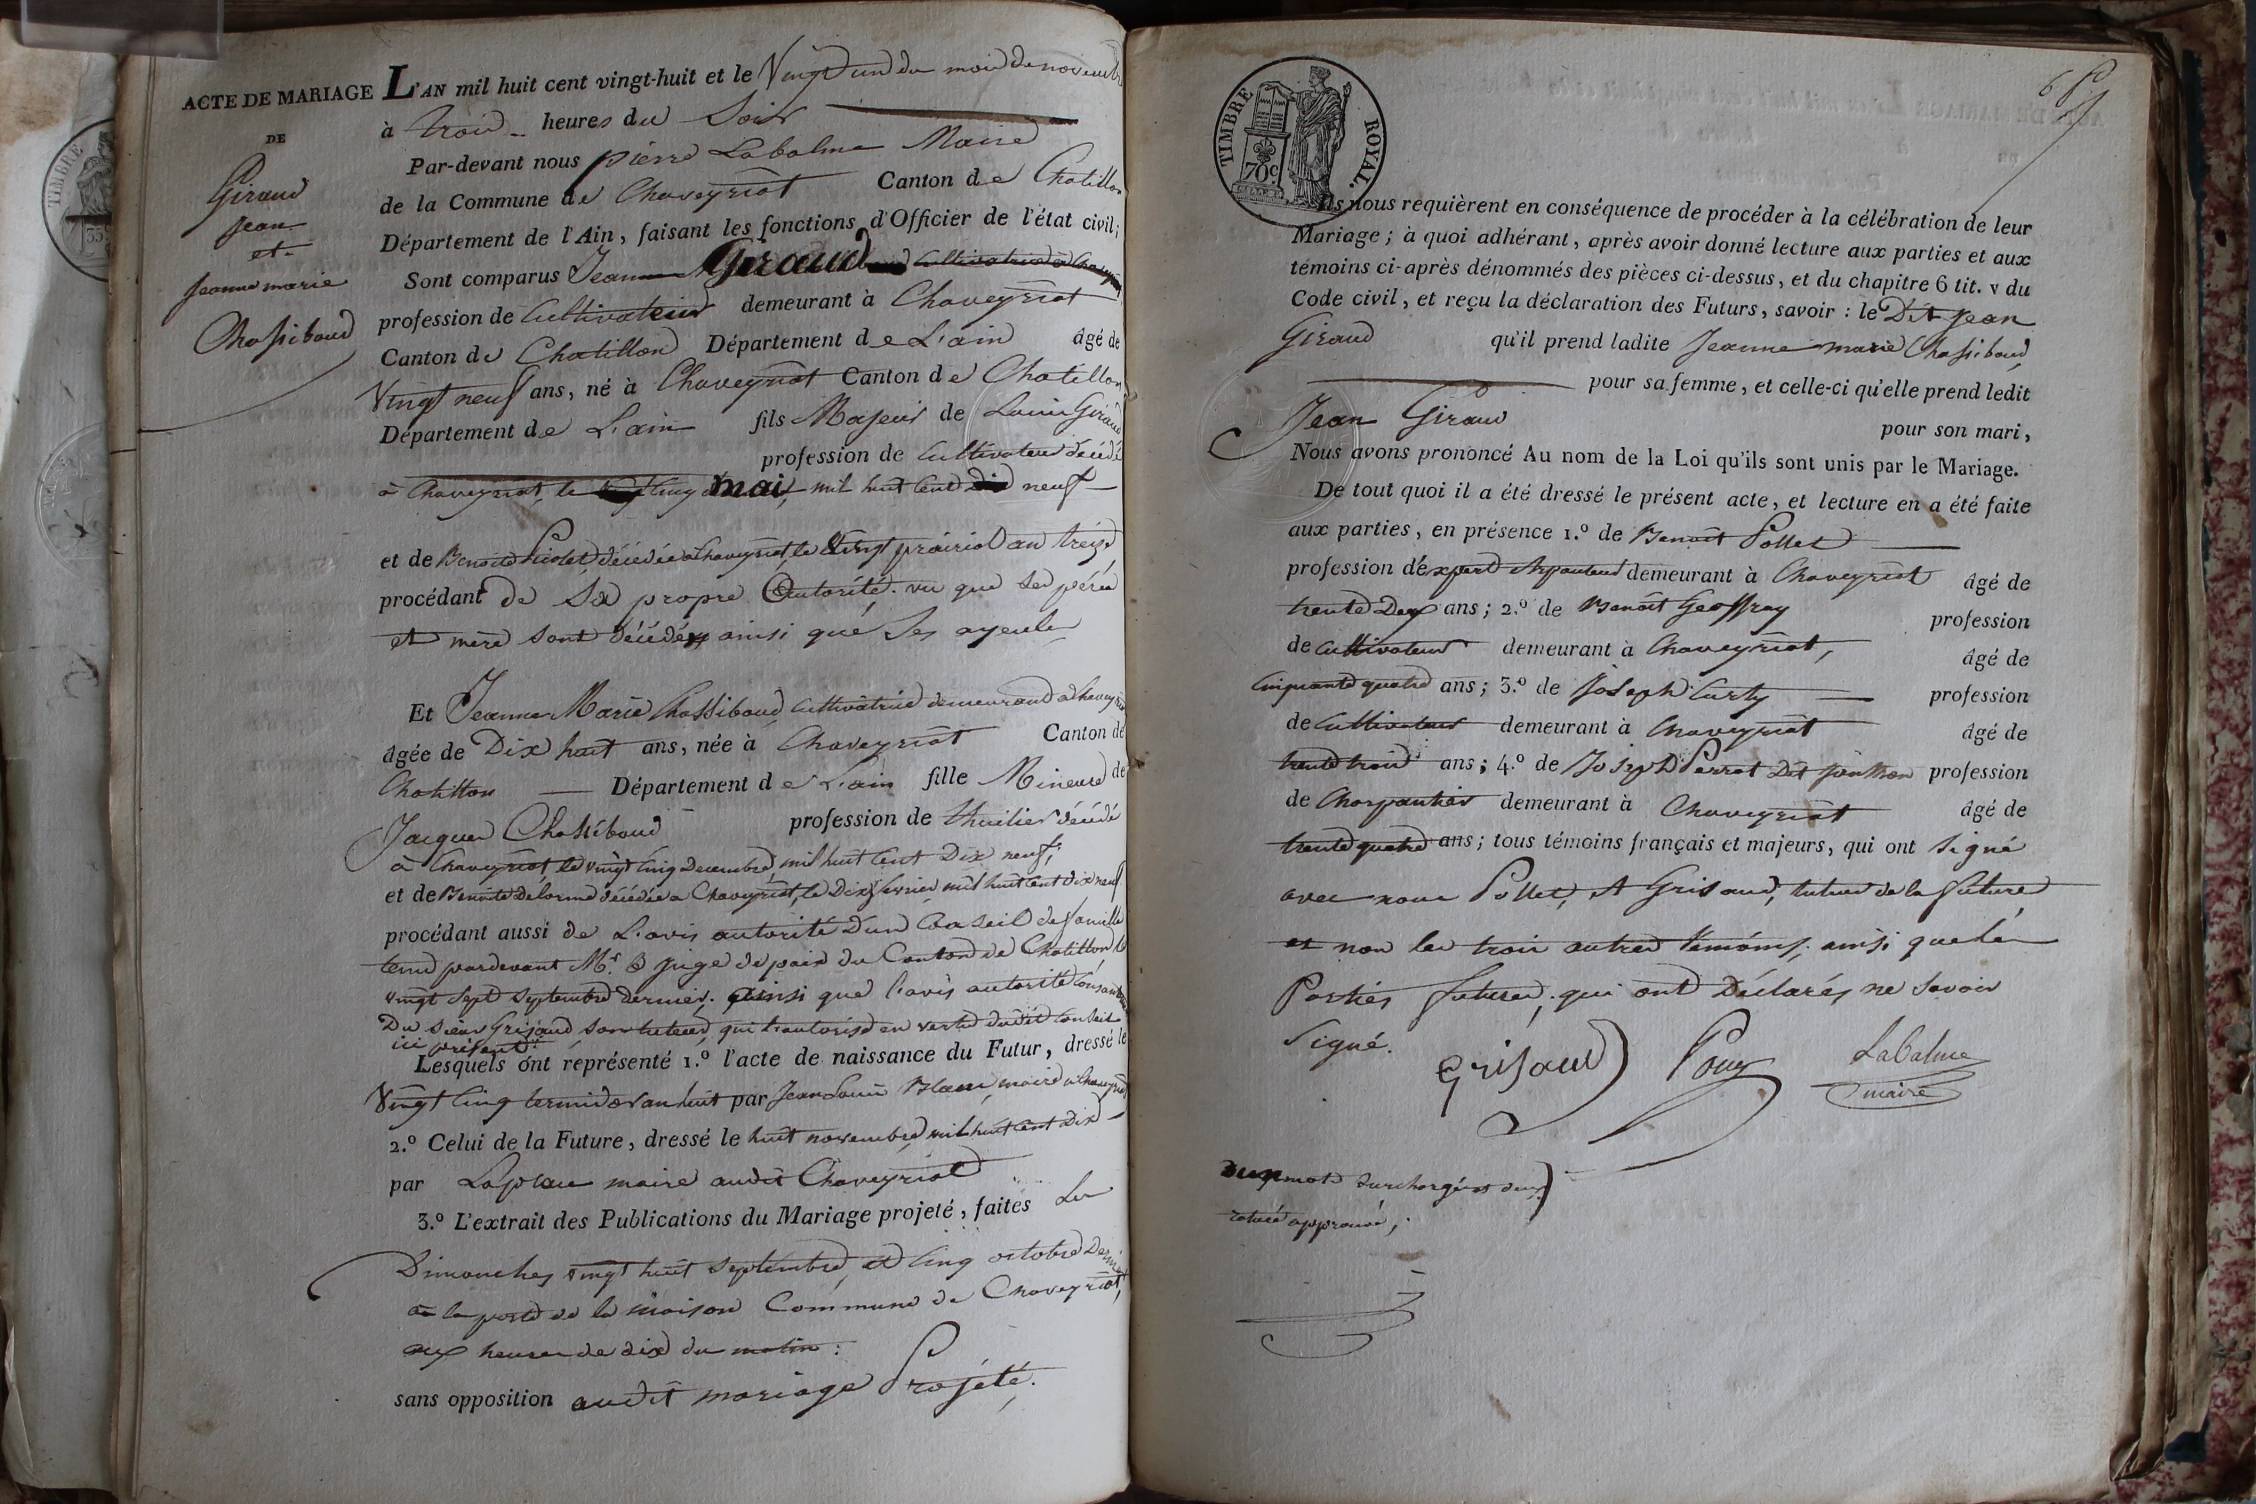 ACTE DE MARIAGE
DE
Giraud
Jean
et
Jeanne marie
Chassiboud
L'AN mil huit cent vingt-huit et le Vingt un du mois de novembre
à trois heures du Soir
Par-devant nous pierre Labalme Maire
de la Commune de Chaveyriat Canton de Chatillon
Département de l'Ain, faisant les fonctions d'Officier de l'état civil;
Sont comparus Jean Giraud
profession de Cultivateur demeurant à Chaveyriat
Canton de Chatillon Département de L'ain âgé de
Vingt neuf ans, né à Chaveyriat Canton de Chatillon
Département de L'ain fils Majeur de Louis Giraud
profession de Cultivateur décédé
à Chaveyriat, le cinq mai, mil huit cent neuf
et de Benoite décédée à Chaveyriat, le vingt prairial an treize
procédant de Sa propre autorité. vu que ses péres
et mère sont décédés ainsi que ses ayeules
Et Jeanne Marie Chassiboud, cultivatrice demeurand a Chaveyriat
âgée de Dix huit ans, née à Chaveyriat Canton de
Chatillon Département de L'ain fille Mineure de
Jacques Chassiboud profession de thuilier décédé
à Chaveyriat, le vingt cinq decembre, mil huit cent Dix neuf;
et de Benoite Delorme décédée a Chaveyriat, le Dix fevrier, mil huit cent dix neuf
procédant aussi de L'avis autorité D'un Conseil de famille
tenu pardevant Mr. le juge de paix du Canton de Chatillon, le
vingt sept septembre dernier. ainsi que l'avis autorité
Du sieur Grisaud, son tuteur, qui l'autorise en vertu dudit conseil
ici présent.
Lesquels ont représenté 1.º l'acte de naissance du Futur, dressé le
Vingt cinq termidor an huit par Jean Louis Blanc, maire a Chaveyriat
2.º Celui de la Future, dressé le huit novembre, mil huit cent Dix
par Laplace maire audit Chaveyriat
3.º L'extrait des Publications du Mariage projeté, faites Les
Dimanches vingt huit septembre, et cinq octobre Dernier
a la porte de la maison Commune de Chaveyriat,
aux heures de dix du matin :
sans opposition audit mariage Projété.
TIMBRE ROYAL.
70c
Ils nous requièrent en conséquence de procéder à la célébration de leur
Mariage ; à quoi adhérant, après avoir donné lecture aux parties et aux
témoins ci-après dénommés des pièces ci-dessus, et du chapitre 6 tit. v du
Code civil, et reçu la déclaration des Futurs, savoir : le Dit Jean
Giraud qu'il prend ladite Jeanne marie Chassiboud,
pour sa femme, et celle-ci qu'elle prend ledit
Jean Giraud pour son mari,
Nous avons prononcé Au nom de la Loi qu'ils sont unis par le Mariage.
De tout quoi il a été dressé le présent acte, et lecture en a été faite
aux parties, en présence 1.º de Benoît Pollet
profession d'Expert Arpanteur demeurant à Chaveyriat âgé de
trente Deux ans; 2.º de Benoît Geoffray profession
de Cultivateur demeurant à Chaveyriat, âgé de
Cinquante quatre ans; 3.º de Joseph Curty profession
de Cultivateur demeurant à Chaveyriat âgé de
trente trois ans; 4.º de Joseph Perrat Dit profession
de Charpantier demeurant à Chaveyriat âgé de
trente quatre ans; tous témoins français et majeurs, qui ont signé
avec nous Pollet, et Grisaud, tuteur de la future
et non les trois autres témoins; ainsi que les
Parties futures, qui ont Déclarés ne savoir
signé.
Grisaud
Labalme
maire
Deux mots surchargés et deux
approuvé,